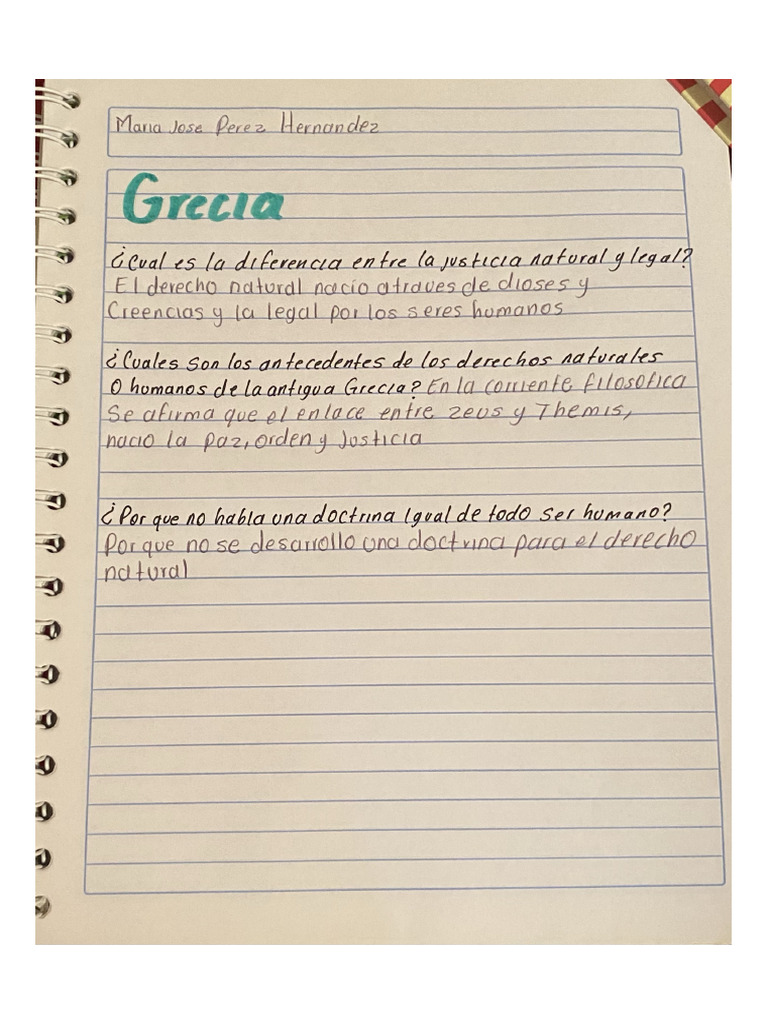 Maria Jose Perez Hernandez
Grecia
¿Cual es la diferencia entre la justicia natural y legal?
El derecho natural nacio atraves de dioses y
Creencias y la legal por los seres humanos
¿Cuales son los antecedentes de los derechos naturales
O humanos de la antigua Grecia? En la corriente filosofica
Se afirma que el enlace entre zeus y Themis,
nacio la paz, orden y Justicia
¿Por que no habla una doctrina igual de todo ser humano?
Por que no se desarrollo una doctrina para el derecho
natural